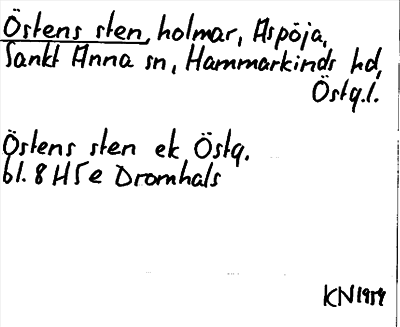 Östens sten, holmar, Aspöja,
Sankt Anna sn, Hammarkinds hd,
Östg.l.
Östens sten ek Östg.
bl. 8 H5e Dromhals
KN 1959